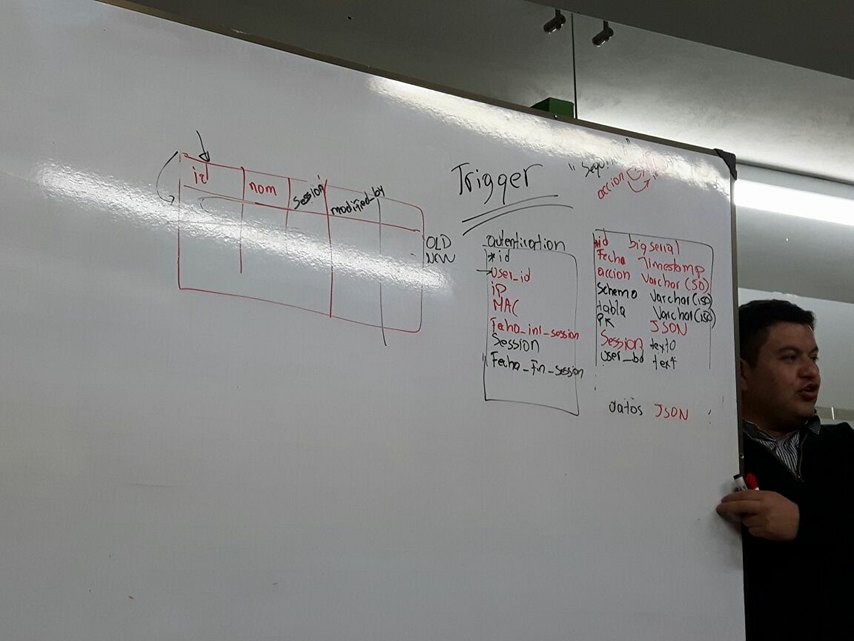 id nom Session modified_by
OLD
NEW
Trigger
accion
autenticacion
*id
User_id
iP
MAC
Fecha_ini_session
Session
Fecha_Fin_session
*id bigserial
Fecha Timestamp
accion Varchar (50)
Schema Varchar (150)
tabla Varchar (150)
PK JSON
Session texto
User_bd text
datos JSON